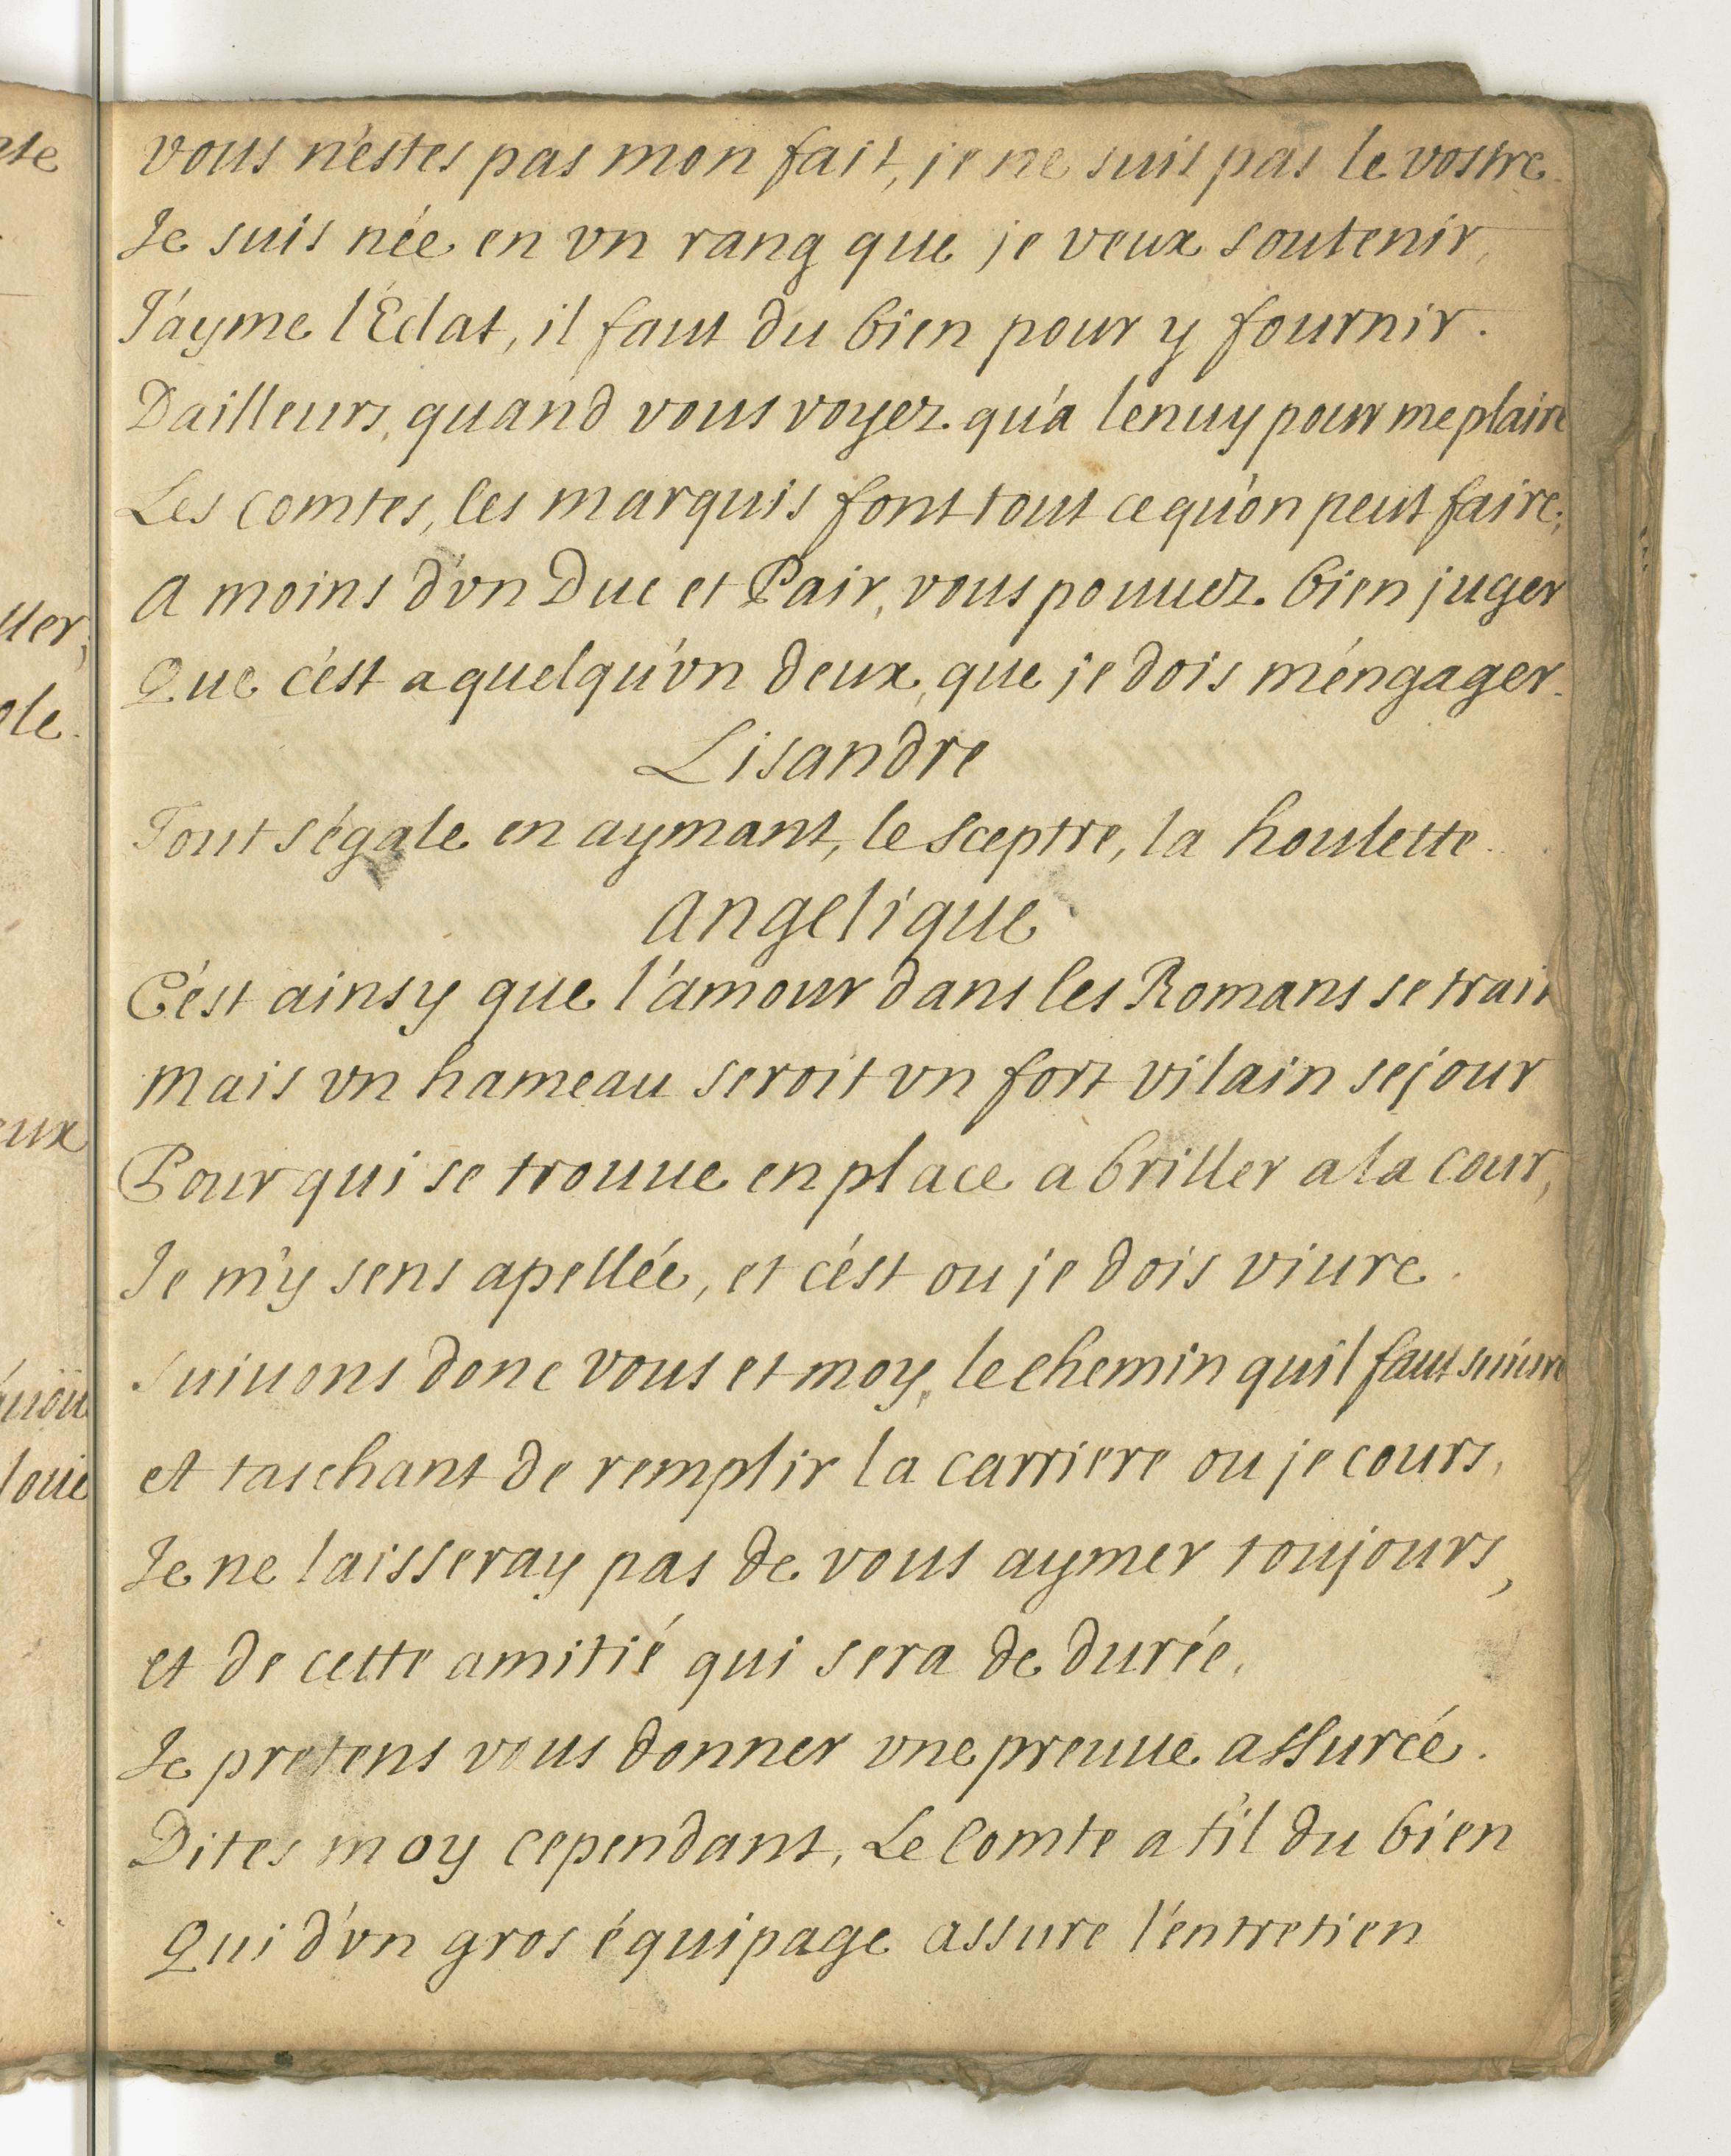 vous n'estes pas mon fait, je ne suis pas le vostre.
Je suis née en vn rang que je veux soutenir,
J'ayme l'Eclat, il faut du bien pour y fournir.
Dailleurs, quand vous voyez qu'a lenuy pour me plaire
Les comtes, les marquis font tout ce qu'on peut faire;
A moins d'vn Duc et Pair, vous pouuez bien juger
Que c'est a quelqu'vn deux, que je dois m'engager.
Lisandre
Tout s'égale en aymant, le sceptre, la houlette.
Angelique
C'est ainsy que l'amour dans les Romans se trait
mais vn hameau seroit vn fort vilain sejour
Pour qui se trouue en place a briller a la cour,
Je m'y sens apellée, et c'est ou je dois viure.
Suiuons donc vous et moy, le chemin quil faut suiure
et taschant de remplir la carriere ou je cours,
Je ne laisseray pas de vous aymer toujours,
et de cette amitié qui sera de durée,
Je pretens vous donner vne preuue assurée.
Dites moy cependant, Le Comte a t'il du bien
Qui d'vn gros équipage assure l'entretien